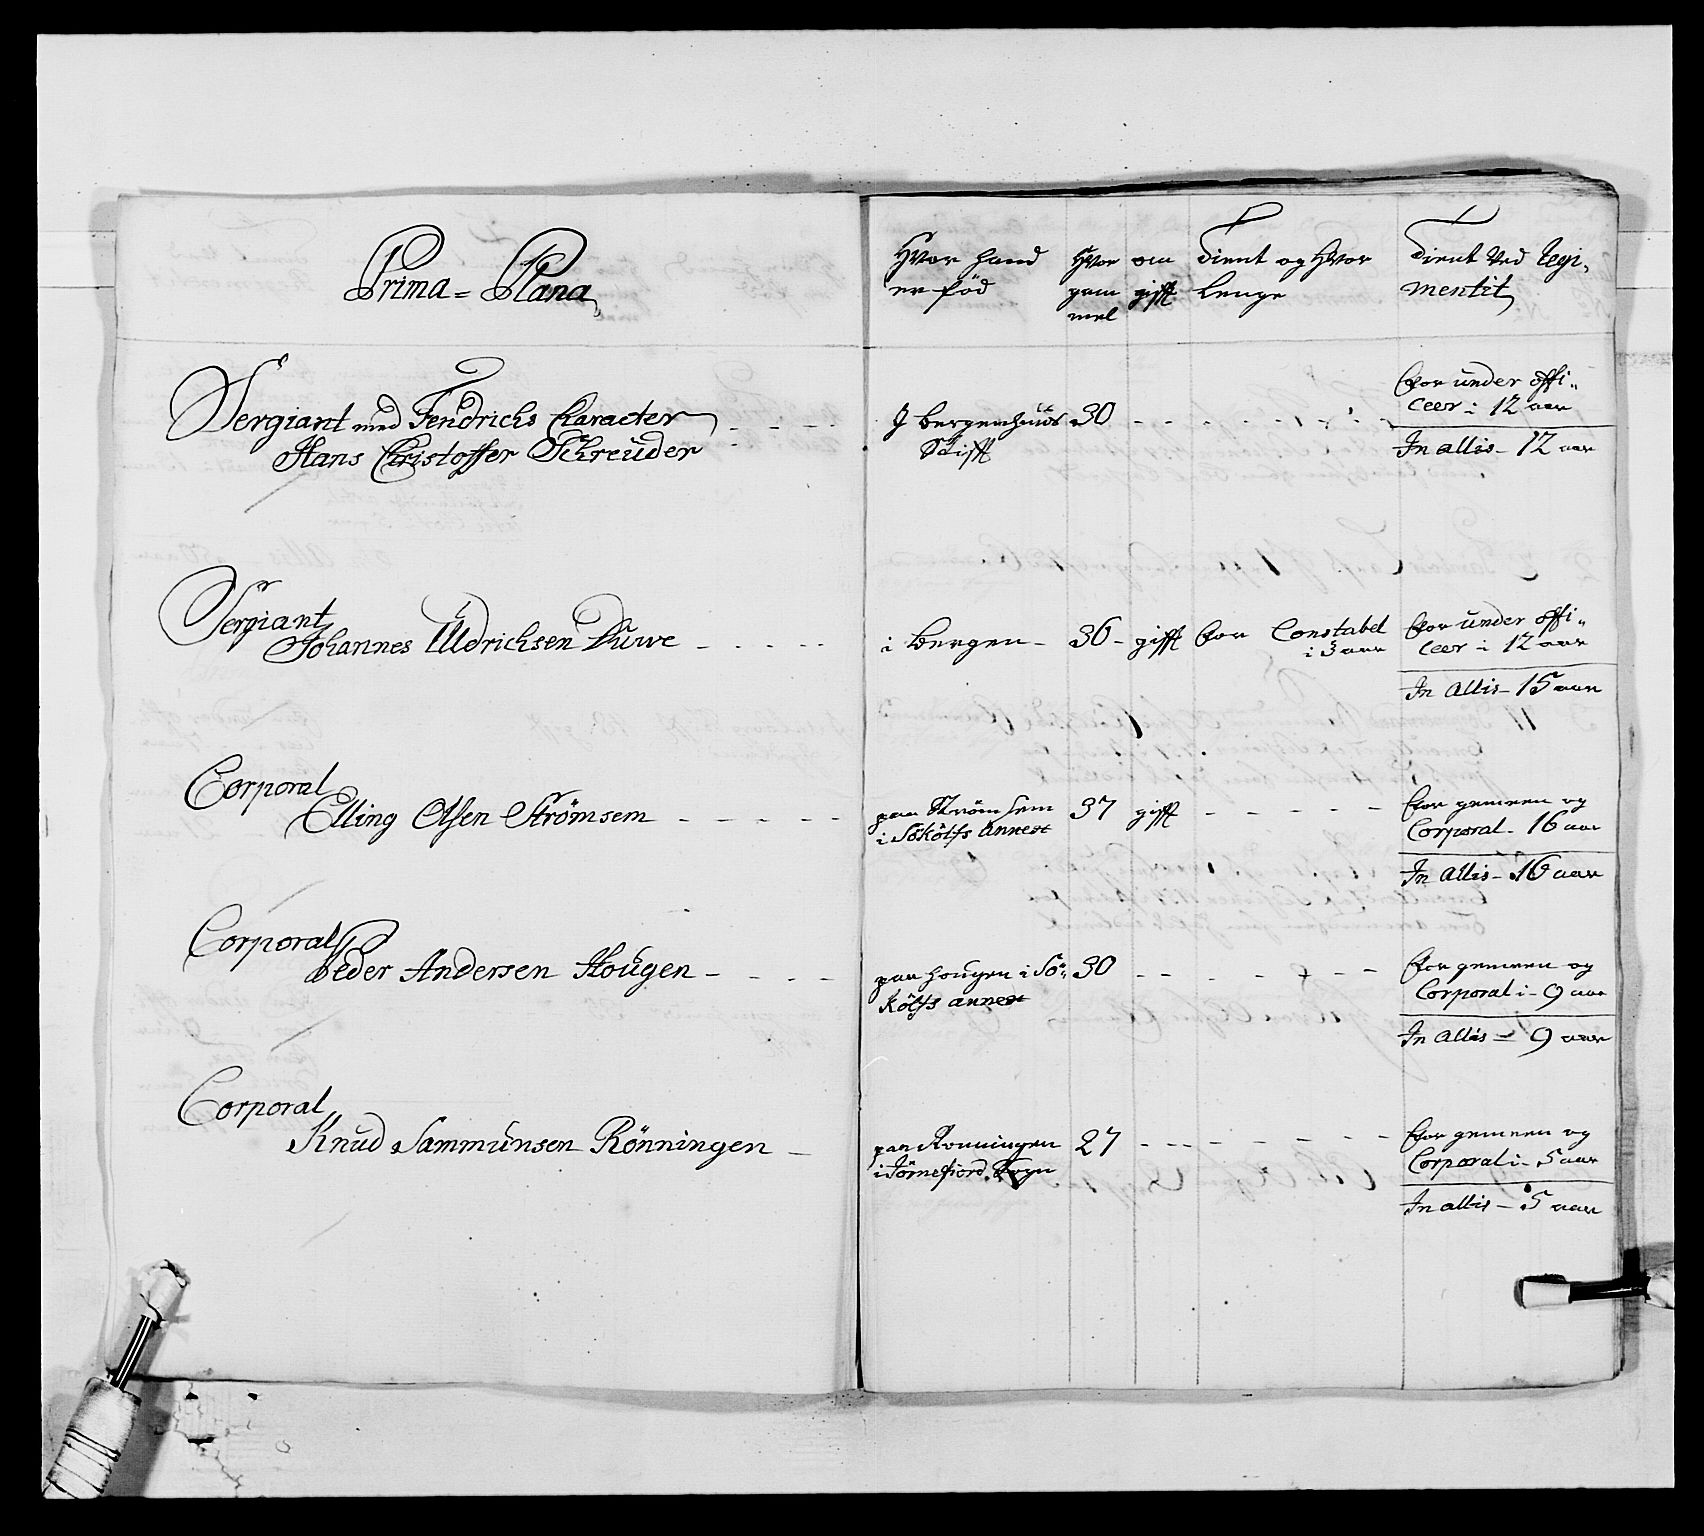 Prima = Plana
Hvor hand er föd
Hvor gam mel
om gifft
Tient og Hvor lenge
Tient Ved Regi, mentit
Sergiant med Fendrichs Character
Hans Christoffer Schreüder
J bergenhüüs Stifft
30
for under offi,, ceer i 12 aar
In allis - 12 aar
Sergiant
Johannes Üldrichsen Düwe
i bergen - 36 - gifft
for Constabel i 3 aar
for under offi,, ceer i 12 aar
In allis - 15 aar
Corporal
Elling Olsen Strömsem
paa Strömsem
37 gifft
for gemeen og Corporal - 16 aar
In allis - 16 aar
Corporal
Peder Andersen Hoügen
paa hougen i
30
for gemeen og Corporal i - 9 aar
In allis = 9 aar
Corporal
Knud Sammünsen Rönningen
paa Ronningen
27
for gemeen og Corporal i - 5 aar
In allis - 5 aar